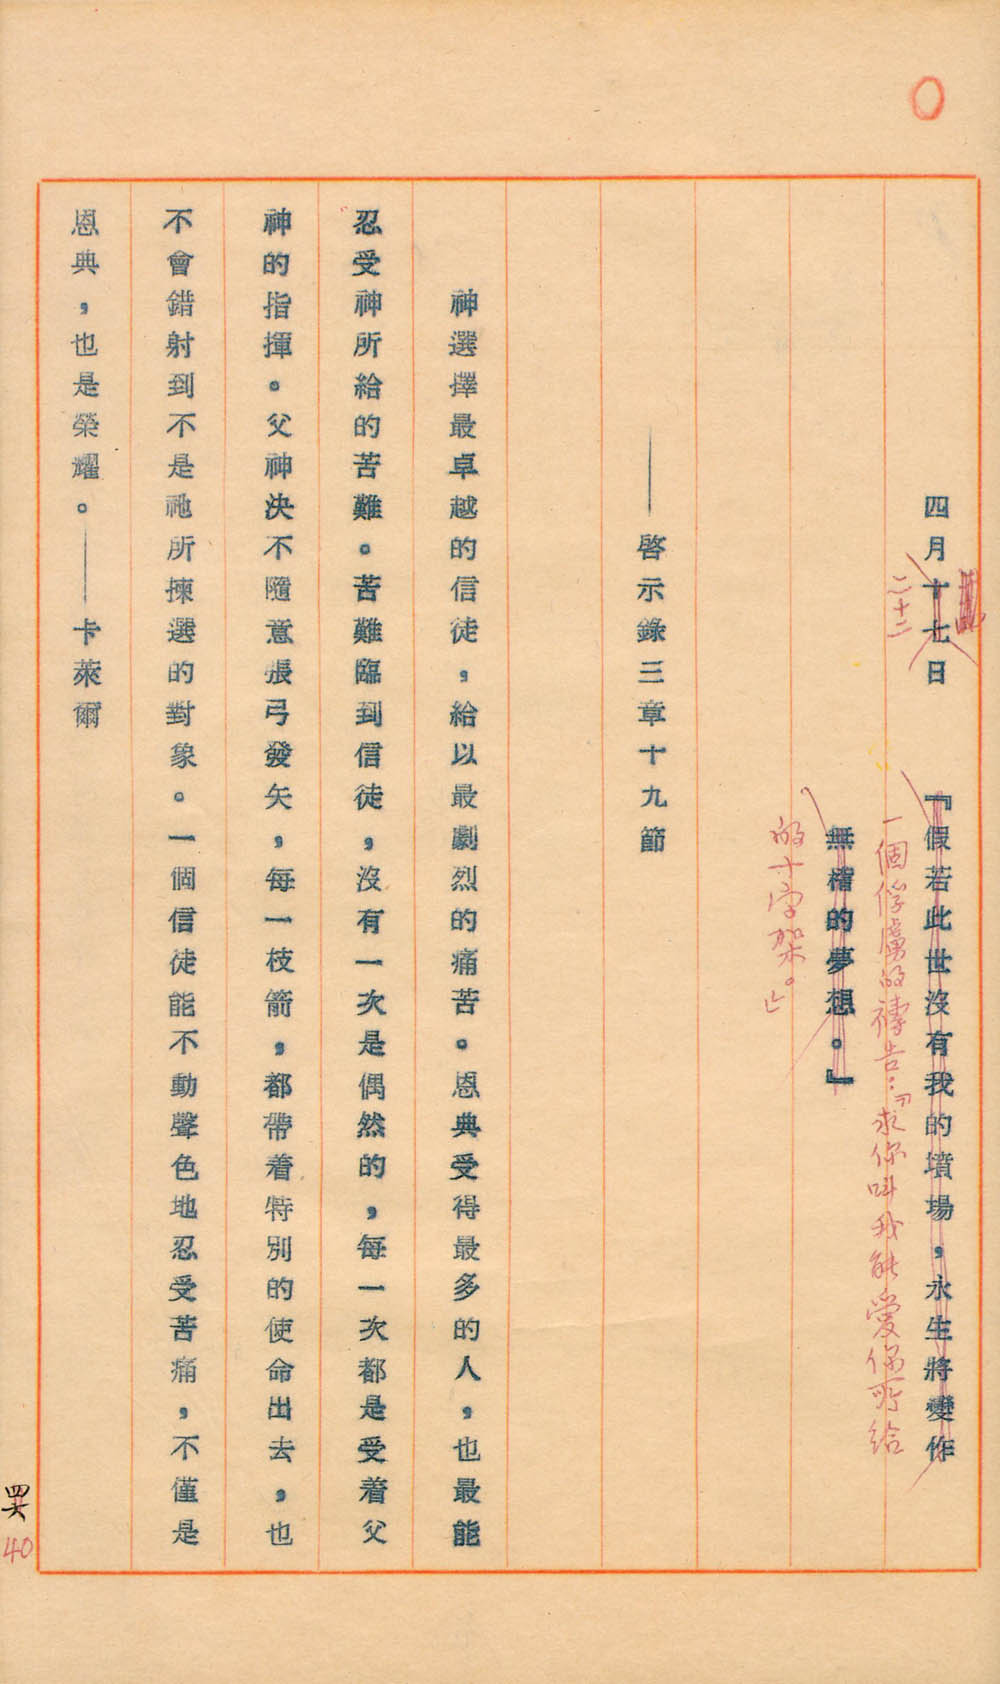 四月十七日　『假若此世沒有我的墳場，永生將變作
二十二
一個俘虜的禱告：『求你叫我能愛你所給
無稽的夢想。』
的十字架。』
——啓示錄三章十九節
神選擇最卓越的信徒，給以最劇烈的痛苦。恩典受得最多的人，也最能
忍受神所給的苦難。苦難臨到信徒，沒有一次是偶然的，每一次都是受着父
神的指揮。父神決不隨意張弓發矢，每一枝箭，都帶着特別的使命出去，也
不會錯射到不是祂所揀選的對象。一個信徒能不動聲色地忍受苦痛，不僅是
恩典，也是榮耀。——卡萊爾
40